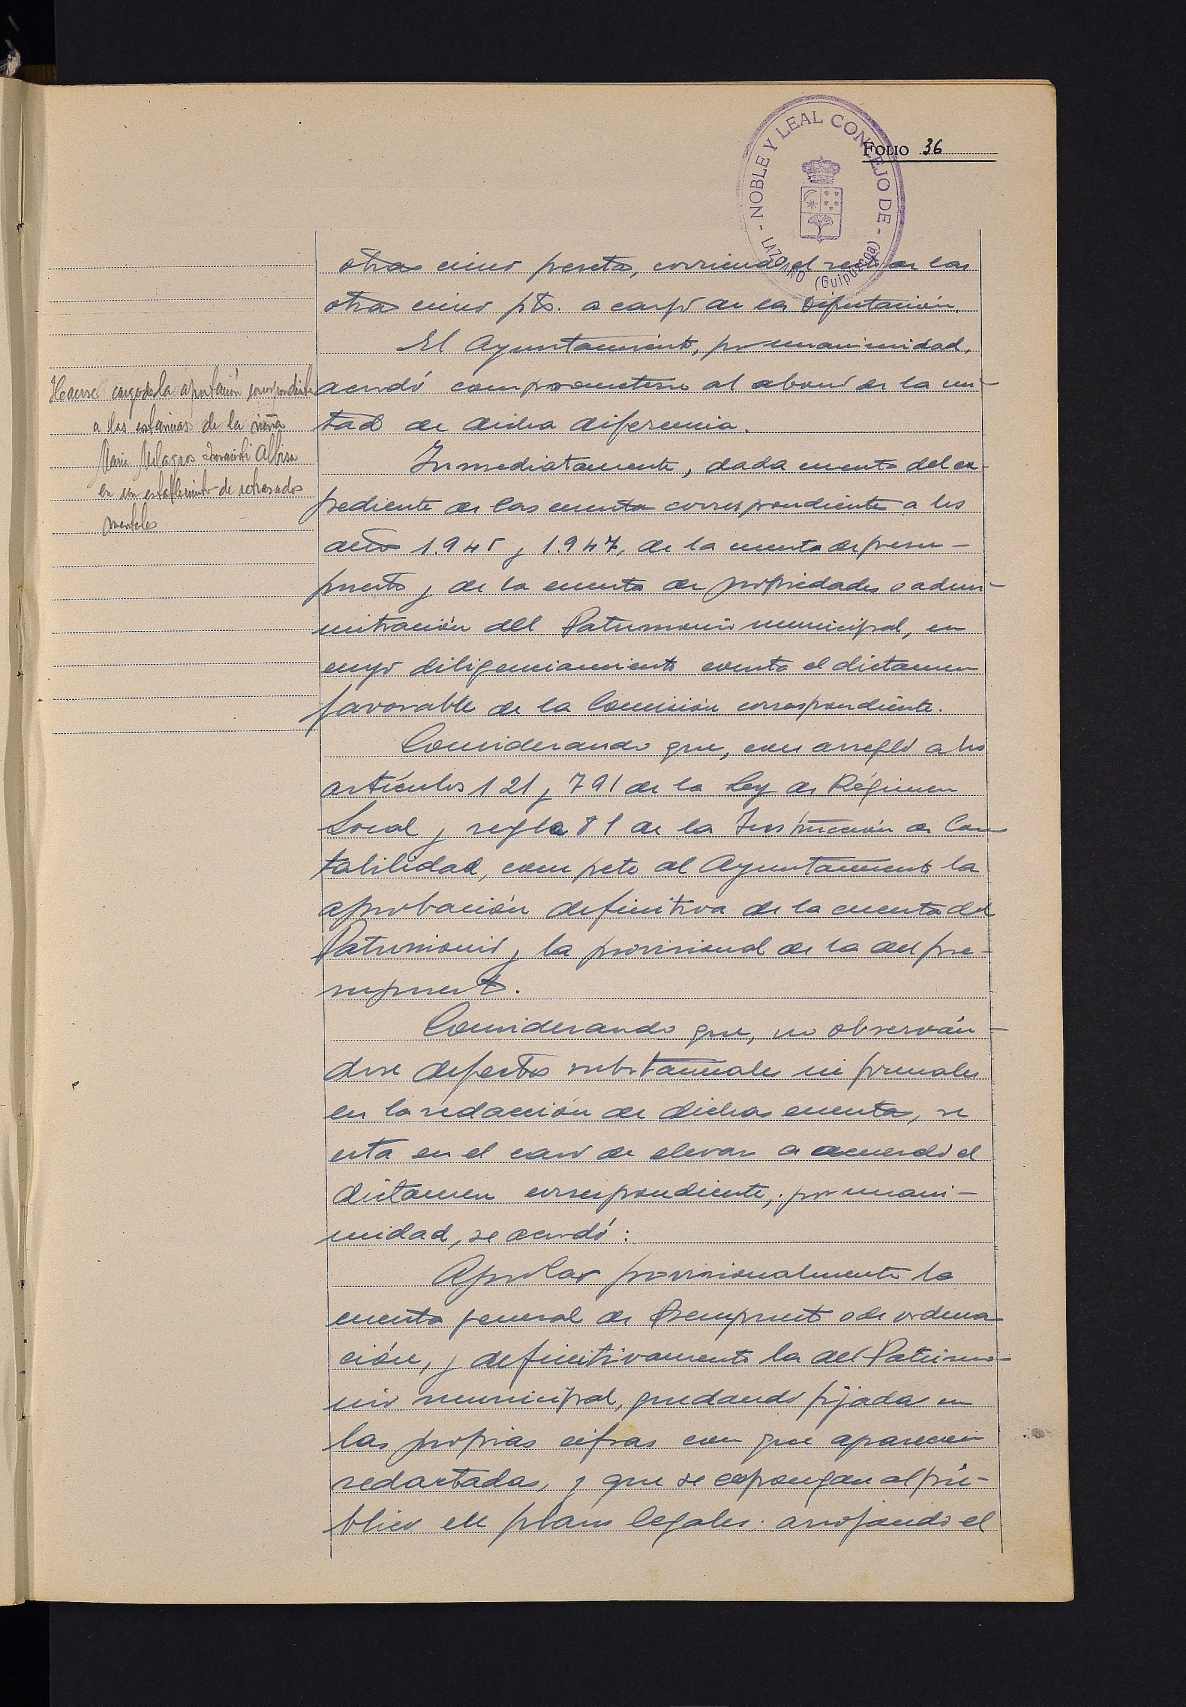 NOBLE Y LEAL CONCEJO DE
LAZCANO (Guipúzcoa)
FOLIO 36
otras cinco pesetas, corriendo el resto las
otras cinco pts. a cargo de la Diputación.
El Ayuntamiento, por unanimidad,
acordó comprometerse al abono de la mi-
tad de dicha diferencia.
Hacerse cargo de la aportación correspondiente
a las estancias de la niña
María Milagros Albisu
en un establecimiento de retrasados
mentales
Inmediatamente, dada cuenta del ex-
pediente de las cuentas correspondiente a los
años 1.945 y 1.947, de la cuenta de presu-
puesto y de la cuenta de propiedades o admi-
nistración del Patrimonio municipal, en
cuyo diligenciamiento consta el dictamen
favorable de la Comisión correspondiente.
Considerando que, con arreglo a los
artículos 121 y 791 de la Ley de Régimen
Local y regla 81 de la Instrucción de Con
tabilidad, compete al Ayuntamiento la
aprobación definitiva de la cuenta del
Patrimonio y la provisional de la del pre-
supuesto.
Considerando que, no observán-
dose defectos substanciales ni formales
en la redacción de dichas cuentas, se
está en el caso de elevar a acuerdo el
dictamen correspondiente, por unani-
midad, se acordó:
Aprobar provisionalmente la
cuenta general de Presupuesto o de ordena
ción, y definitivamente la del Patrimo-
nio municipal, quedando fijadas en
las propias cifras con que aparecen
redactadas, y que se expongan al pú-
blico en plazos legales. arrojando el